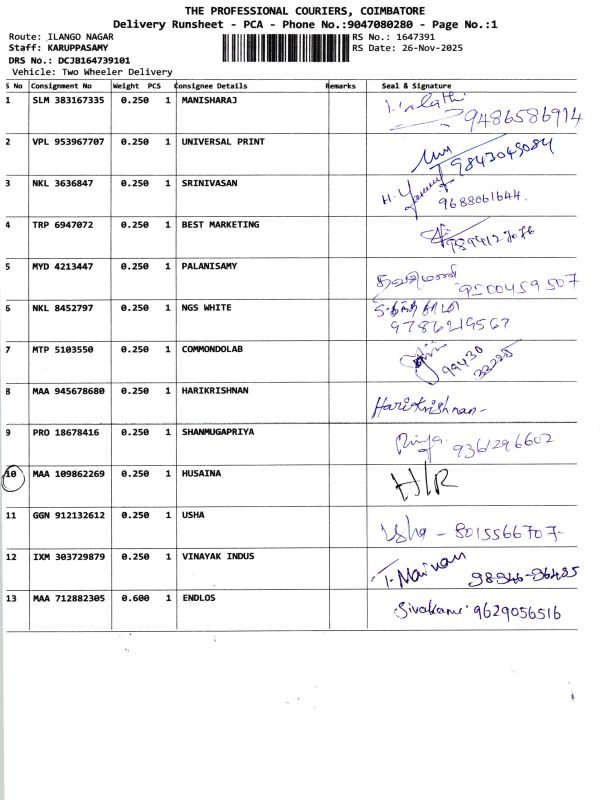 THE PROFESSIONAL COURIERS, COIMBATORE
Delivery Runsheet - PCA - Phone No.:9047080280 - Page No.:1
Route: ILANGO NAGAR RS No.: 1647391
Staff: KARUPPASAMY RS Date: 26-Nov-2025
DRS No.: DCJB164739101
Vehicle: Two Wheeler Delivery
S No Consignment No Weight PCS Consignee Details Remarks Seal & Signature
1 SLM 383167335 0.250 1 MANISHARAJ 9486586914
2 VPL 953967707 0.250 1 UNIVERSAL PRINT 9843049084
3 NKL 3636847 0.250 1 SRINIVASAN 9688061644.
4 TRP 6947072 0.250 1 BEST MARKETING
5 MYD 4213447 0.250 1 PALANISAMY 9500459507
6 NKL 8452797 0.250 1 NGS WHITE 9786219567
7 MTP 5103550 0.250 1 COMMONDOLAB 99430 22225
8 MAA 945678680 0.250 1 HARIKRISHNAN Harikrishnan-
9 PRO 18678416 0.250 1 SHANMUGAPRIYA Priya. 9361296602
10 MAA 109862269 0.250 1 HUSAINA H/R
11 GGN 912132612 0.250 1 USHA Usha - 8015566707-
12 IXM 303729879 0.250 1 VINAYAK INDUS 98946-96485
13 MAA 712882305 0.600 1 ENDLOS Sivakami 9629056516